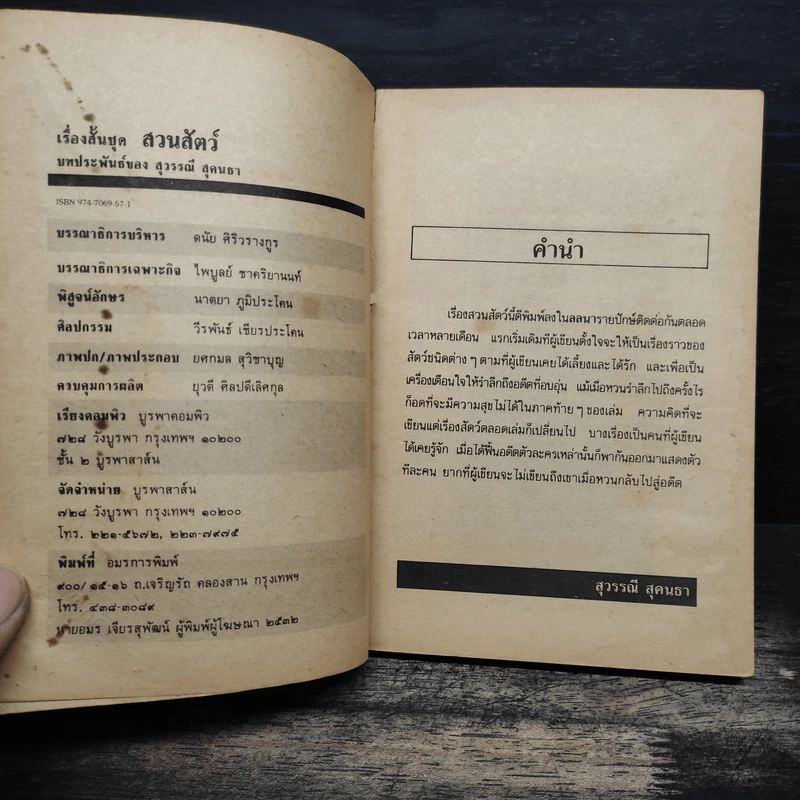 เรื่องสั้นชุด สวนสัตว์
บทประพันธ์ของ สุวรรณี สุคนธา
ISBN 974-7069-57-1
บรรณาธิการบริหาร ดนัย ศิริวรางกูร
บรรณาธิการเฉพาะกิจ ไพบูลย์ ชาคริยานนท์
พิสูจน์อักษร นาตยา ภูมิประโคน
ศิลปกรรม วีรพันธ์ เชียรประโคน
ภาพปก/ภาพประกอบ ยศกมล สุวิชาบุญ
ควบคุมการผลิต ยุวดี ศิลปดีเลิศกุล
เรียงคอมพิว บูรพาคอมพิว
๗๒๘ วังบูรพา กรุงเทพฯ ๑๐๒๐๐
ชั้น ๒ บูรพาสาส์น
จัดจำหน่าย บูรพาสาส์น
๗๒๘ วังบูรพา กรุงเทพฯ ๑๐๒๐๐
โทร. ๒๒๑-๕๖๗๒, ๒๒๓-๗๙๗๕
พิมพ์ที่ อมรการพิมพ์
๙๐๐/๑๕-๑๖ ถ.เจริญรัถ คลองสาน กรุงเทพฯ
โทร. ๔๓๘-๓๐๘๙
นายอมร เจียรสุพัฒน์ ผู้พิมพ์ผู้โฆษณา ๒๕๓๒
คำนำ
เรื่องสวนสัตว์นี้ตีพิมพ์ลงในลลนารายปักษ์ติดต่อกันตลอด
เวลาหลายเดือน แรกเริ่มเดิมทีผู้เขียนตั้งใจจะให้เป็นเรื่องราวของ
สัตว์ชนิดต่าง ๆ ตามที่ผู้เขียนเคยได้เลี้ยงและได้รัก และเพื่อเป็น
เครื่องเตือนใจให้รำลึกถึงอดีตที่อบอุ่น แม้เมื่อหวนรำลึกไปถึงครั้งไร
ก็อดที่จะมีความสุขไม่ได้ในภาคท้าย ๆ ของเล่ม ความคิดที่จะ
เขียนแต่เรื่องสัตว์ตลอดเล่มก็เปลี่ยนไป บางเรื่องเป็นคนที่ผู้เขียน
ได้เคยรู้จัก เมื่อได้ฟื้นอดีตตัวละครเหล่านั้นก็พากันออกมาแสดงตัว
ทีละคน ยากที่ผู้เขียนจะไม่เขียนถึงเขาเมื่อหวนกลับไปสู่อดีต
สุวรรณี สุคนธา